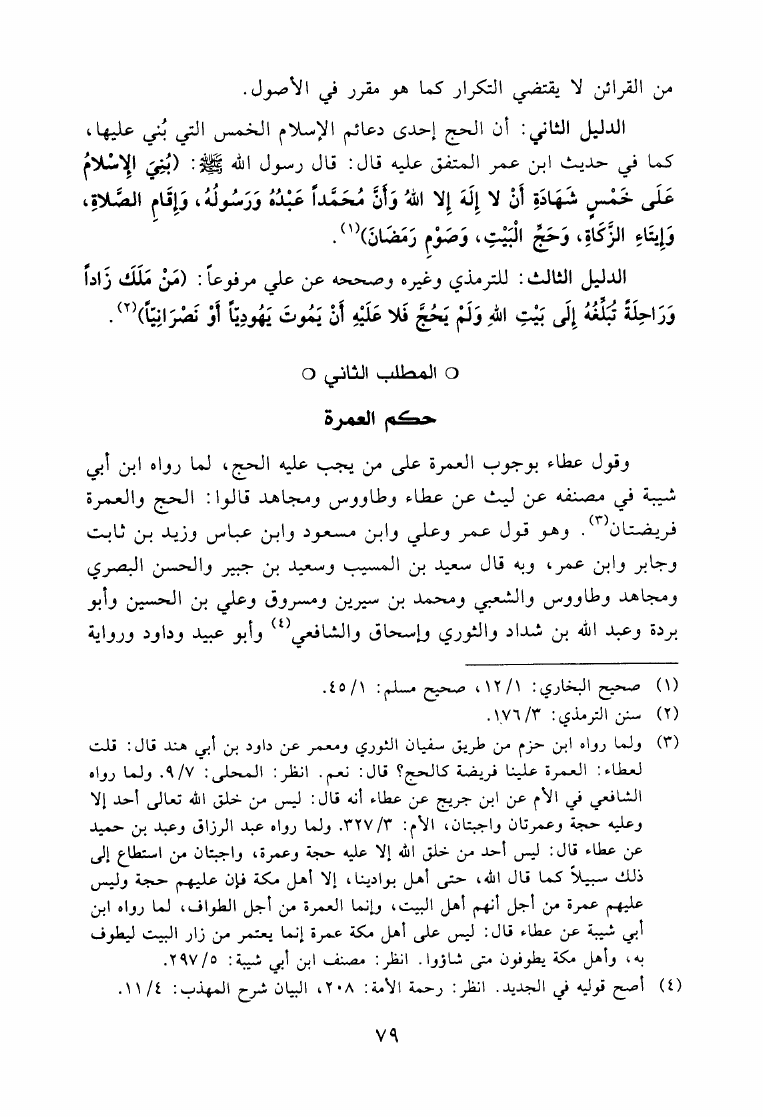 من القرائن لا يقتضي التكرار كما هو مقرر في الأصول.
الدليل الثاني: أن الحج إحدى دعائم الإسلام الخمس التي بُني عليها،
كما في حديث ابن عمر المتفق عليه قال: قال رسول الله ﷺ: (بُنِيَ الإِسْلامُ
عَلَى خَمْسٍ شَهَادَةِ أَنْ لا إِلَهَ إِلا اللهُ وَأَنَّ مُحَمَّداً عَبْدُهُ وَرَسُولُهُ، وَإِقَامِ الصَّلاةِ،
وَإِيتَاءِ الزَّكَاةِ، وَحَجِّ الْبَيْتِ، وَصَوْمِ رَمَضَانَ)(١).
الدليل الثالث: للترمذي وغيره وصححه عن علي مرفوعاً: (مَنْ مَلَكَ زَاداً
وَرَاحِلَةً تُبَلِّغُهُ إِلَى بَيْتِ اللهِ وَلَمْ يَحُجَّ فَلا عَلَيْهِ أَنْ يَمُوتَ يَهُودِيّاً أَوْ نَصْرَانِيّاً)(٢).
○ المطلب الثاني ○
حكم العمرة
وقول عطاء بوجوب العمرة على من يجب عليه الحج، لما رواه ابن أبي
شيبة في مصنفه عن ليث عن عطاء وطاووس ومجاهد قالوا: الحج والعمرة
فريضتان(٣). وهو قول عمر وعلي وابن مسعود وابن عباس وزيد بن ثابت
وجابر وابن عمر، وبه قال سعيد بن المسيب وسعيد بن جبير والحسن البصري
ومجاهد وطاووس والشعبي ومحمد بن سيرين ومسروق وعلي بن الحسين وأبو
بردة وعبد الله بن شداد والثوري وإسحاق والشافعي(٤) وأبو عبيد وداود ورواية
(١) صحيح البخاري: ١٢/١، صحيح مسلم: ٤٥/١.
(٢) سنن الترمذي: ١٧٦/٣.
(٣) ولما رواه ابن حزم من طريق سفيان الثوري ومعمر عن داود بن أبي هند قال: قلت
لعطاء: العمرة علينا فريضة كالحج؟ قال: نعم. انظر: المحلى: ٩/٧. ولما رواه
الشافعي في الأم عن ابن جريج عن عطاء أنه قال: ليس من خلق الله تعالى أحد إلا
وعليه حجة وعمرتان واجبتان، الأم: ٣٢٧/٣. ولما رواه عبد الرزاق وعبد بن حميد
عن عطاء قال: ليس أحد من خلق الله إلا عليه حجة وعمرة، واجبتان من استطاع إلى
ذلك سبيلاً كما قال الله، حتى أهل بوادينا، إلا أهل مكة فإن عليهم حجة وليس
عليهم عمرة من أجل أنهم أهل البيت، وإنما العمرة من أجل الطواف، لما رواه ابن
أبي شيبة عن عطاء قال: ليس على أهل مكة عمرة إنما يعتمر من زار البيت ليطوف
به، وأهل مكة يطوفون متى شاؤوا. انظر: مصنف ابن أبي شيبة: ٢٩٧/٥.
(٤) أصح قوليه في الجديد. انظر: رحمة الأمة: ٢٠٨، البيان شرح المهذب: ١١/٤.
٧٩